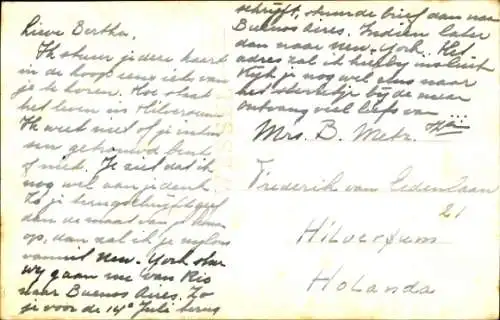 Lieve Bertha,
Ik stuur jedere kaart
in de hoop eens iets van
je te horen. Hoe staat
het leven in Hilversum
Ik weet niet of je intus
sen getrouwd bent
of niet. Je ziet dat ik
nog wel aan je denk.
Zo je terugschrijft geef
dan de maat van je
op, dan zal ik je nylons
vanuit New-York
wij gaan nu van Rio
naar Buenos Aires. Zo
je voor de 14e Juli terug
schrijft, stuur de brief dan naar
Buenos Aires. Indien later
dan naar New-York. Het
adres zal ik hierbij insluit
Kijk je nog wel eens naar
het sterretje bij de maan
ontvang veel liefs van
Mrs. B. Metz.
Frederik van Eedenlaan
21
Hilversum
Holanda